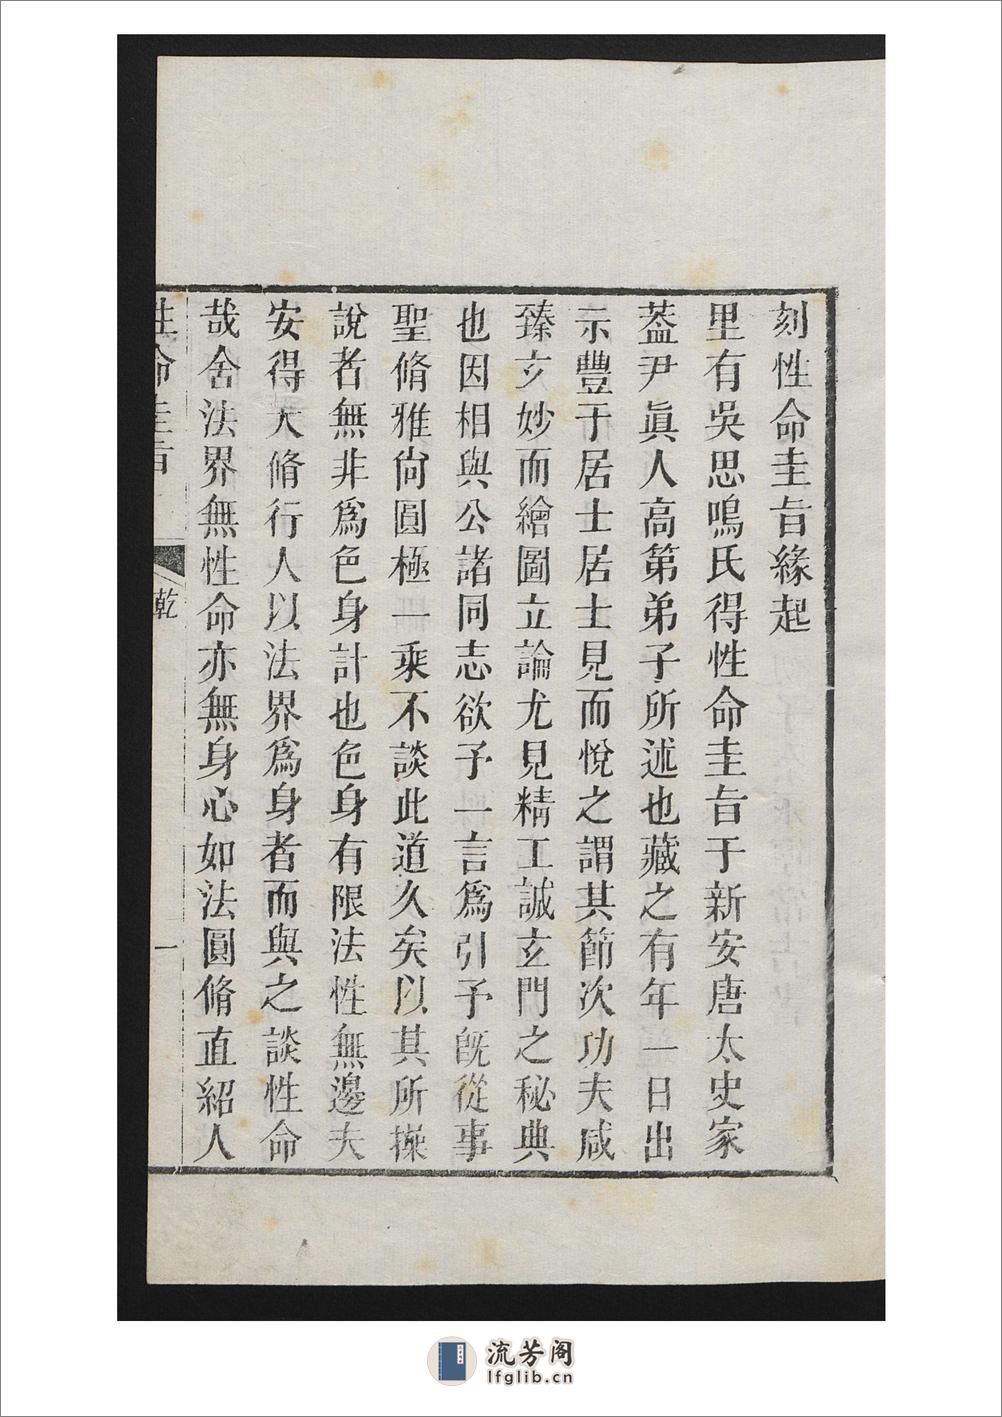 刻性命圭旨緣起
里有吳思鳴氏得性命圭旨于新安唐太史家
葢尹眞人高第弟子所述也藏之有年一日出
示豐于居士居士見而悅之謂其節次功夫咸
臻玄妙而繪圖立論尤見精工誠玄門之秘典
也因相與公諸同志欲予一言爲引予旣從事
聖脩雅尙圓極一乘不談此道久矣以其所操
說者無非爲色身計也色身有限法性無邊夫
安得大脩行人以法界爲身者而與之談性命
哉舍法界無性命亦無身心如法圓脩直紹人
性命圭旨
乾
一
流芳阁
lfglib.cn